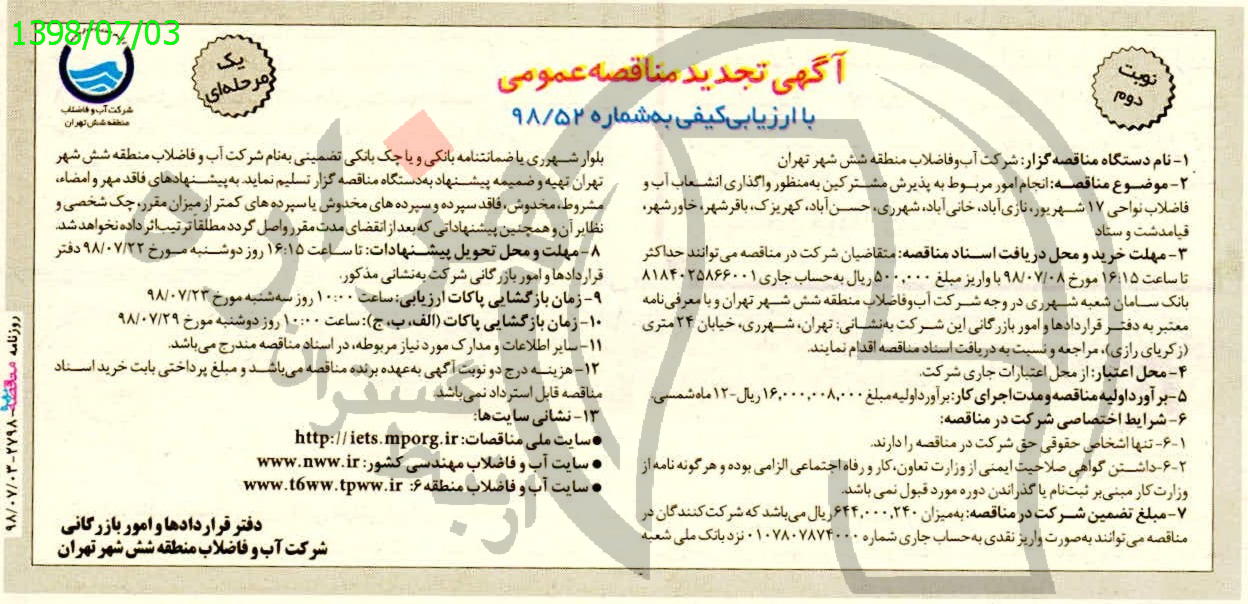 1398/07/03
شرکت آب و فاضلاب
منطقه شش تهران
یک
مرحله‌ای
آگهی تجدید مناقصه عمومی
با ارزیابی کیفی به‌شماره ۹۸/۵۲
نوبت
دوم
۱- نام دستگاه مناقصه گزار: شرکت آب‌وفاضلاب منطقه شش شهر تهران
۲- موضـوع مناقصـه: انجام امور مربـوط به پذیرش مشتـرکین به‌منظور واگذاری انشـعاب آب و
فاضلاب نواحی ۱۷ شـهریور، نازی‌آباد، خانی‌آباد، شهرری، حسـن‌آباد، کهریزک، باقرشهر، خاورشهر،
قیامدشت و ستاد
۳- مهلت خرید و محل دریافت اسـناد مناقصه: متقاضیان شرکت در مناقصه می‌توانند حداکثر
تا ساعت ۱۶:۱۵ مورخ ۹۸/۰۷/۰۸ با واریز مبلغ ۵۰۰,۰۰۰ ریال به‌حساب جاری ۸۱۸۴۰۲۵۸۶۶۰۰۱
بانک سـامان شعبه شهـرری در وجه شـرکت آب‌وفاضلاب منطقه شش شـهر تهران و با معرفی‌نامه
معتبر به دفتـر قراردادها و امور بازرگانی این شـرکت به‌نشـانی: تهران، شـهرری، خیابان ۲۴ متری
(زکریای رازی)، مراجعه و نسبت به دریافت اسناد مناقصه اقدام نمایند.
۴- محل اعتبار: از محل اعتبارات جاری شرکت.
۵- برآورد اولیه مناقصه و مدت اجرای کار: برآورد اولیه مبلغ ۱۶,۰۰۰,۰۰۸,۰۰۰ ریال-۱۲ ماه شمسی.
۶- شرایط اختصاصی شرکت در مناقصه:
۶-۱- تنها اشخاص حقوقی حق شرکت در مناقصه را دارند.
۶-۲- داشـتن گواهی صلاحیت ایمنی از وزارت تعاون، کار و رفاه اجتماعی الزامی بوده و هرگونه نامه از
وزارت کار مبنی‌بر ثبت‌نام یا گذراندن دوره مورد قبول نمی باشد.
۷- مبلغ تضمین شـرکت در مناقصه: به‌میزان ۶۴۴,۰۰۰,۲۴۰ ریال می‌باشد که شرکت‌کنندگان در
مناقصه می‌توانند به‌صورت واریز نقدی به‌حساب جاری شماره ۰۱۰۷۸۰۷۸۷۴۰۰۰ نزد بانک ملی شعبه
بلوار شـهرری یا ضمانتنامه بانکی و یا چک بانکی تضمینی به‌نام شرکت آب و فاضلاب منطقه شش شهر
تهران تهیه و ضمیمه پیشـنهاد به‌دستگاه مناقصه گزار تسلیم نماید. به پیشـنهادهای فاقد مهر و امضاء،
مشروط، مخدوش، فاقد سپرده و سپرده های مخدوش یا سپرده های کمتر از میزان مقرر، چک شخصی و
نظایر آن و همچنین پیشنهاداتی که بعد از انقضای مدت مقرر واصل گردد مطلقاً ترتیب اثر داده نخواهد شد.
۸- مهلت و محل تحویل پیشـنهادات: تا سـاعت ۱۶:۱۵ روز دوشـنبه مـورخ ۹۸/۰۷/۲۲ دفتر
قراردادها و امور بازرگانی شرکت به‌نشانی مذکور.
۹- زمان بازگشایی پاکات ارزیابی: ساعت ۱۰:۰۰ روز سه‌شنبه مورخ ۹۸/۰۷/۲۳
۱۰- زمان بازگشایی پاکات (الف، ب، ج): ساعت ۱۰:۰۰ روز دوشنبه مورخ ۹۸/۰۷/۲۹
۱۱- سایر اطلاعات و مدارک مورد نیاز مربوطه، در اسناد مناقصه مندرج می‌باشد.
۱۲- هزینـه درج دو نوبت آگهی به‌عهده برنده مناقصه می‌باشـد و مبلغ پرداختی بابت خرید اسـناد
مناقصه قابل استرداد نمی‌باشد
۱۳- نشانی سایت‌ها:
● سایت ملی مناقصات: http://iets.mporg.ir
● سایت آب و فاضلاب مهندسی کشور: www.nww.ir
● سایت آب و فاضلاب منطقه ۶: www.t6ww.tpww.ir
دفتر قراردادها و امور بازرگانی
شرکت آب و فاضلاب منطقه شش شهر تهران
روزنامه مناقصه - ۲۷۹۸ - ۹۸/۰۷/۰۳